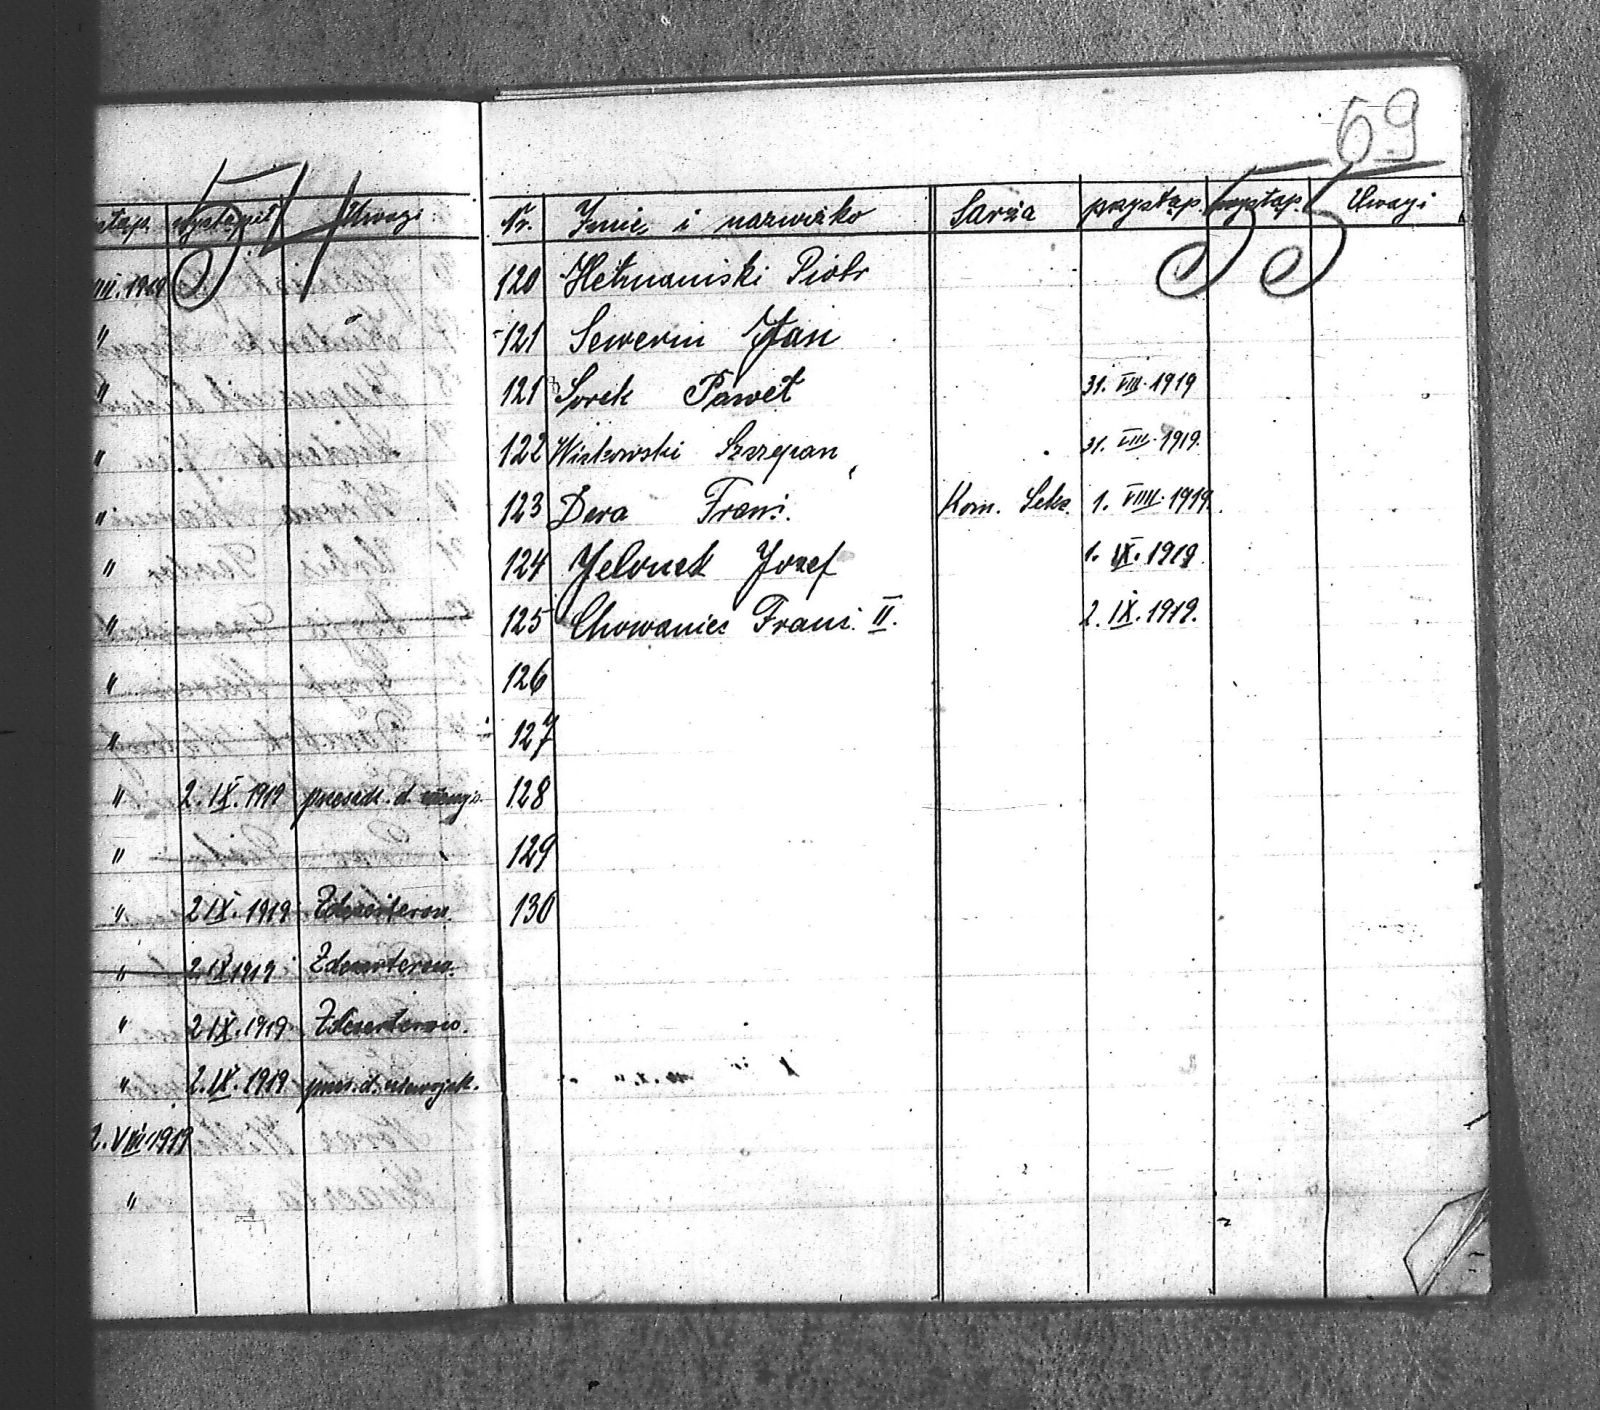 54
wystąpił Uwagi
VIII. 1919
"
"
"
"
"
"
"
"
" 2. IX. 1919
"
" 2 IX. 1919 Zdeserterow.
" 2 IX 1919 Zdeserterow.
" 2 IX. 1919 Zdeserterow.
" 2. IX. 1919
2. VIII 1919
"
69
55
Nr. Imię i nazwisko Sarża przystąp. wystąp. Uwagi
120 Hetmaniski Piotr
121 Sewerin Jan
121 Sorek Paweł 31. VIII. 1919
122 Szczepan 31. VIII. 1919.
123 Dera Franc. Kom. Sekc. 1. VIIII. 1919.
124 Jelonek Jozef 1. IX. 1919
125 Chowaniec Franc. II. 2. IX. 1919.
126
127
128
129
130